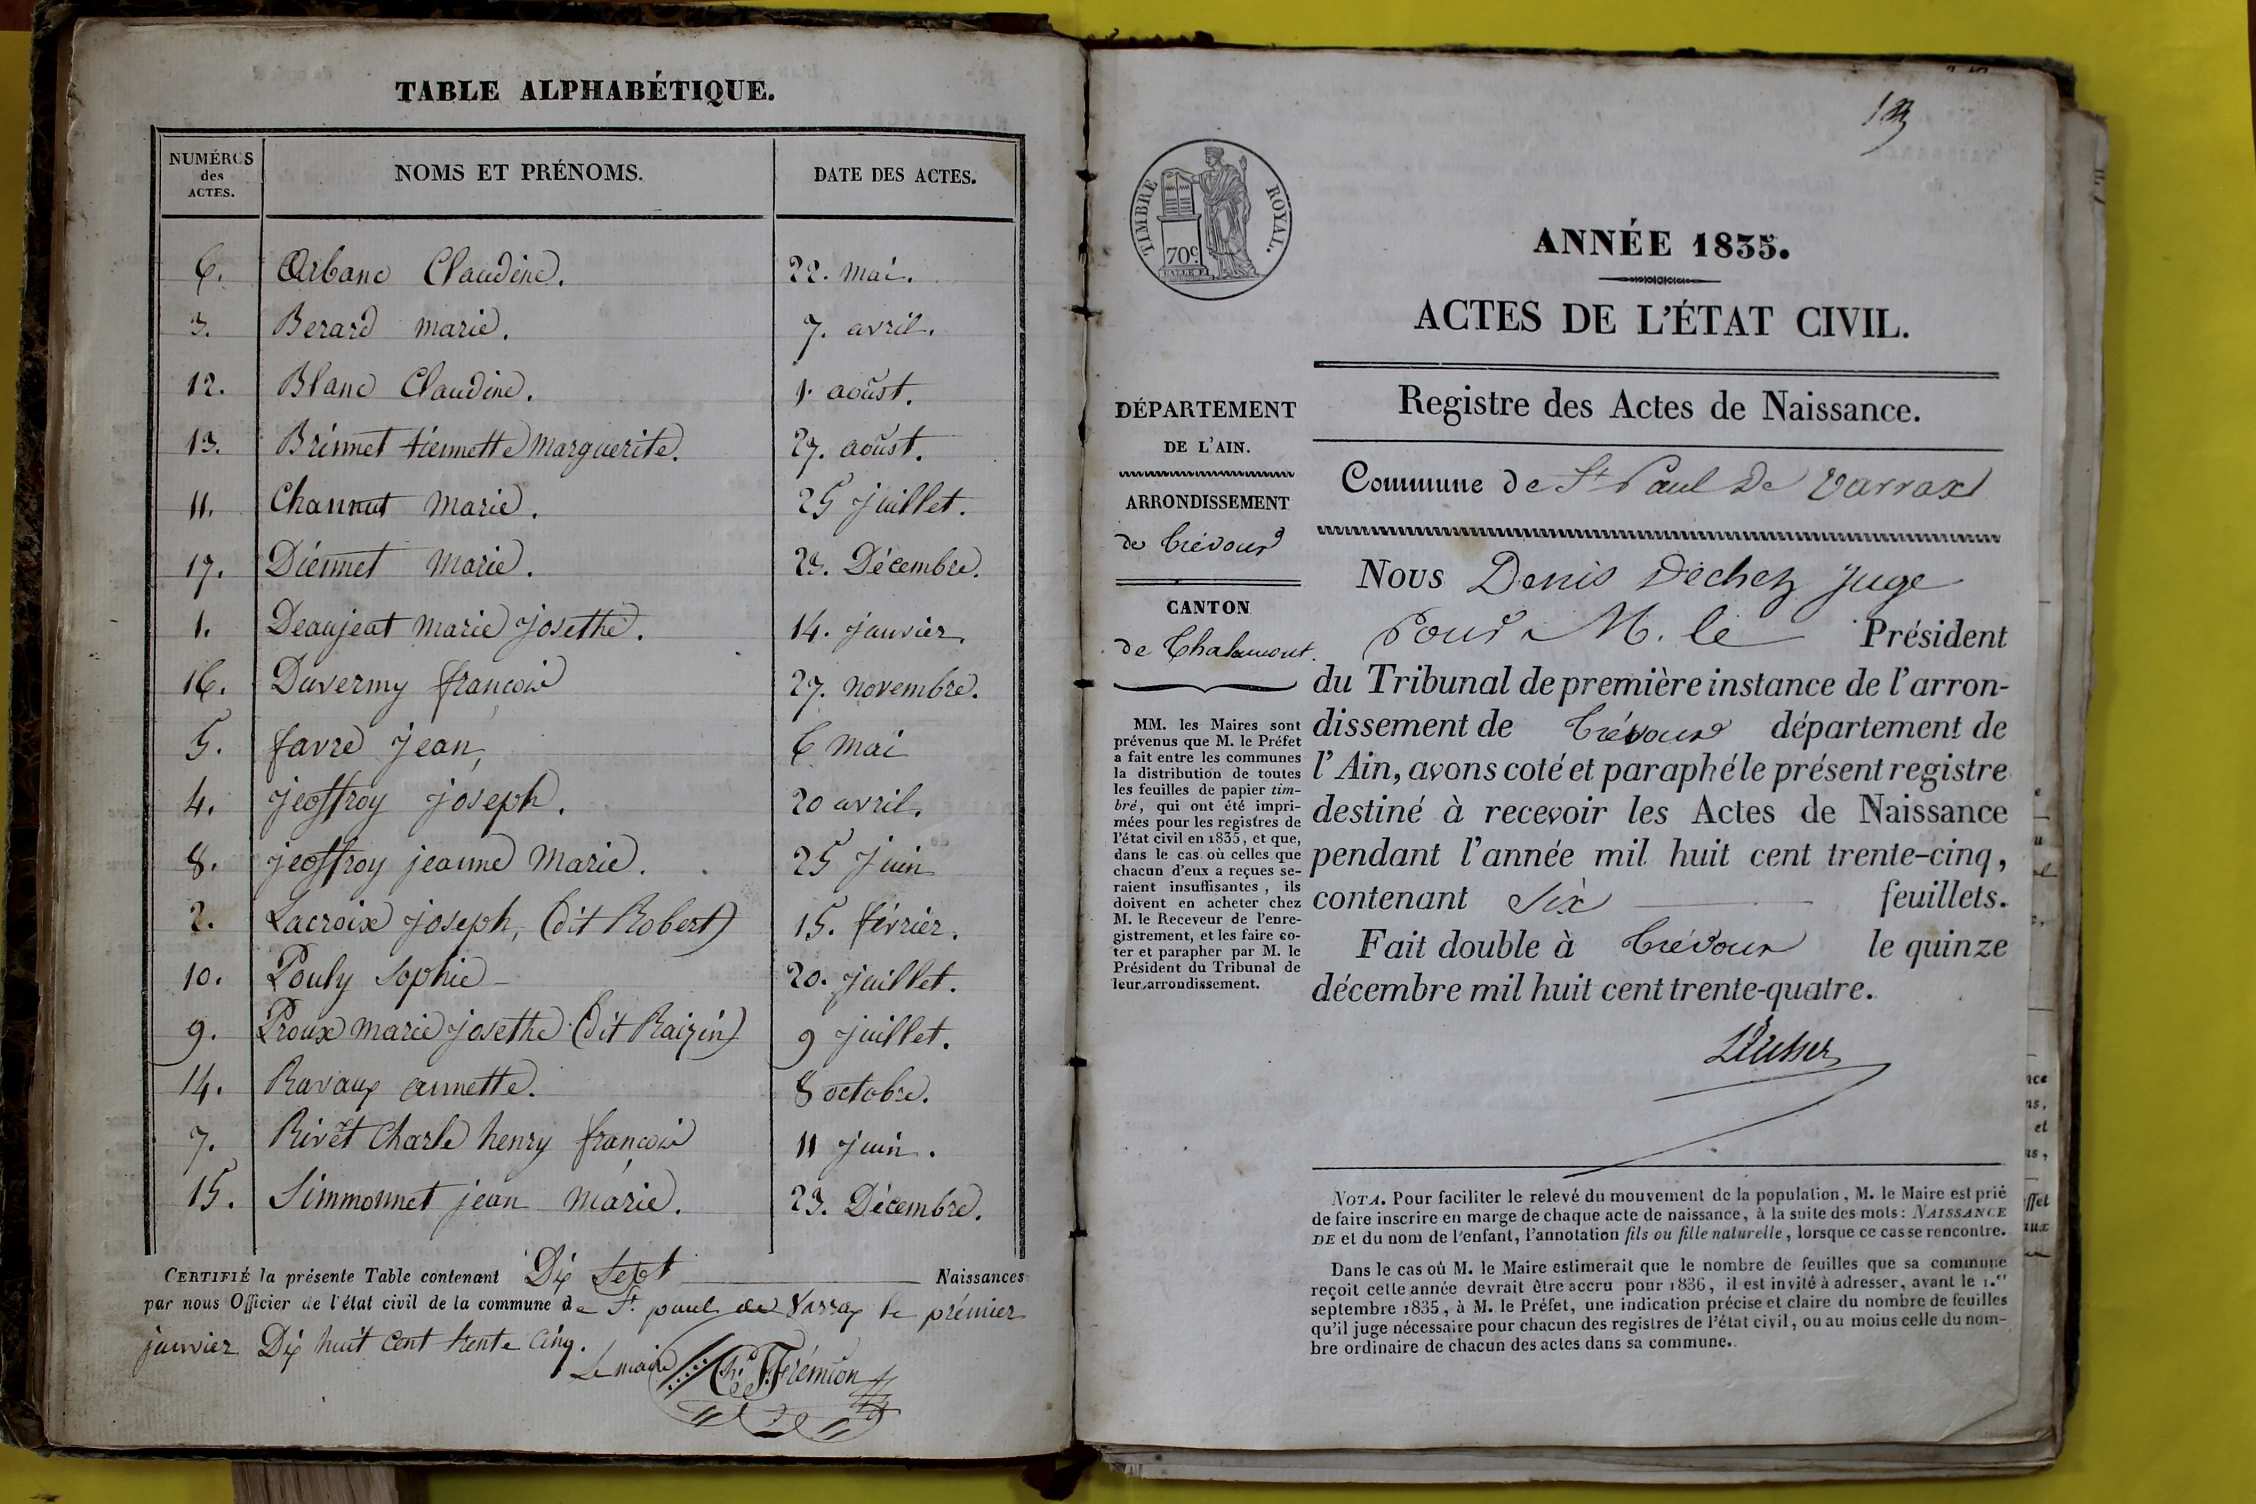 TABLE ALPHABÉTIQUE.
NUMÉROS des ACTES. NOMS ET PRÉNOMS. DATE DES ACTES.
6. Arbanc Claudine. 22. mai.
3. Berard marie. 7. avril.
12. Blanc Claudine. 1. aoûst.
13. Brinnet tiennette Marguerite. 27. aoûst.
11. Channut Marie. 25 juillet.
17. Diennet Marie. 23. Décembre.
1. Deaujeat Marie josethe. 14. janvier.
16. Duvermy françois 27. novembre.
5. favre jean, 6 mai
4. jeoffroy joseph. 20 avril.
8. jeoffroy jeanne Marie. 25 juin
2. Lacroix joseph, (dit Robert) 15. février.
10. Pouly Sophie 20. juillet.
9. Proux marie josethe (dit Raizin) 9 juillet.
14. Ravaux annette. 8 octobre.
7. Rivet Charle henry françois 11 juin.
15. Simmonnet jean marie. 23. Décembre.
CERTIFIÉ la présente Table contenant Dix Sept Naissances
par nous Officier de l'état civil de la commune de St. paul de Varax le prémier
janvier Dix huit cent trente cinq.
Le maire
Frémion
TIMBRE ROYAL.
70c
ANNÉE 1835.
ACTES DE L'ÉTAT CIVIL.
Registre des Actes de Naissance.
Commune de St Paul de Varrax
DÉPARTEMENT
DE L'AIN.
ARRONDISSEMENT
de trévoux
CANTON
de Chalamont.
MM. les Maires sont
prévenus que M. le Préfet
a fait entre les communes
la distribution de toutes
les feuilles de papier tim-
bré, qui ont été impri-
mées pour les registres de
l'état civil en 1835, et que,
dans le cas où celles que
chacun d'eux a reçues se-
raient insuffisantes, ils
doivent en acheter chez
M. le Receveur de l'enre-
gistrement, et les faire co-
ter et parapher par M. le
Président du Tribunal de
leur arrondissement.
Nous Denis Dechez juge
Pour M. le Président
du Tribunal de première instance de l'arron-
dissement de trévoux département de
l'Ain, avons coté et paraphé le présent registre
destiné à recevoir les Actes de Naissance
pendant l'année mil huit cent trente-cinq,
contenant Six feuillets.
Fait double à trévoux le quinze
décembre mil huit cent trente-quatre.
NOTA. Pour faciliter le relevé du mouvement de la population, M. le Maire est prié
de faire inscrire en marge de chaque acte de naissance, à la suite des mots: NAISSANCE
DE et du nom de l'enfant, l'annotation fils ou fille naturelle, lorsque ce cas se rencontre.
Dans le cas où M. le Maire estimerait que le nombre de feuilles que sa commune
reçoit cette année devrait être accru pour 1836, il est invité à adresser, avant le 1.er
septembre 1835, à M. le Préfet, une indication précise et claire du nombre de feuilles
qu'il juge nécessaire pour chacun des registres de l'état civil, ou au moins celle du nom-
bre ordinaire de chacun des actes dans sa commune.